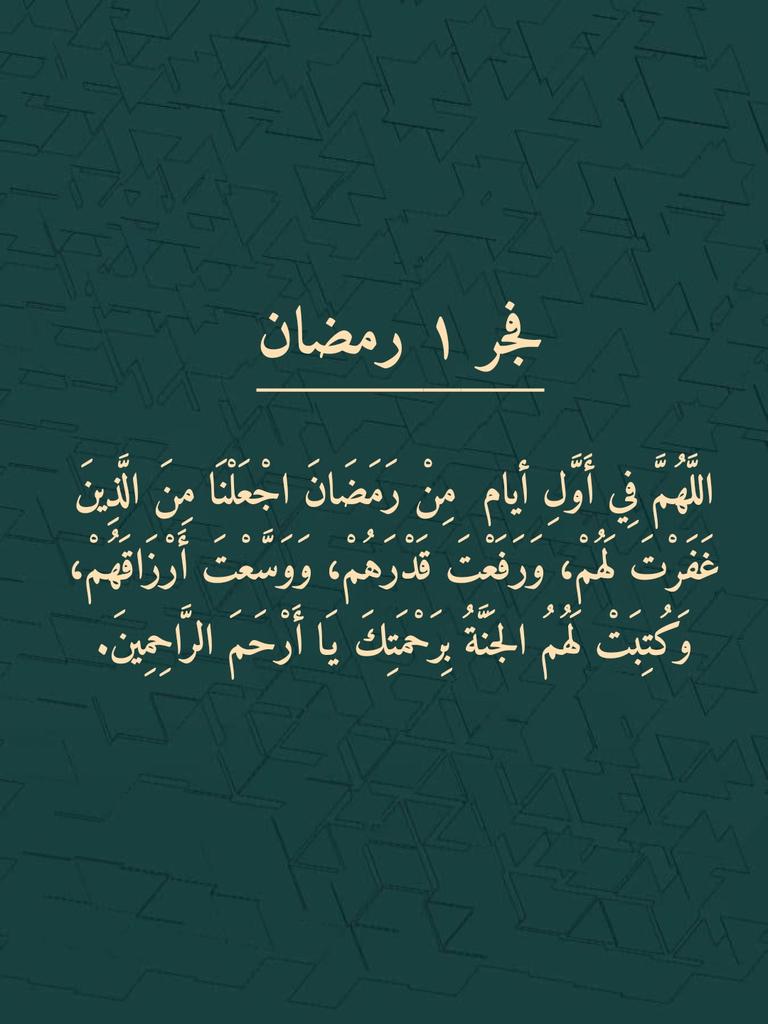 فجر ١ رمضان
اللَّهُمَّ فِي أَوَّلِ أيام مِنْ رَمَضَانَ اجْعَلْنَا مِنَ الَّذِينَ
غَفَرْتَ لَهُمْ، وَرَفَعْتَ قَدْرَهُمْ، وَوَسَّعْتَ أَرْزَاقَهُمْ،
وَكُتِبَتْ لَهُمُ الجَنَّةُ بِرَحْمَتِكَ يَا أَرْحَمَ الرَّاحِمِينَ.